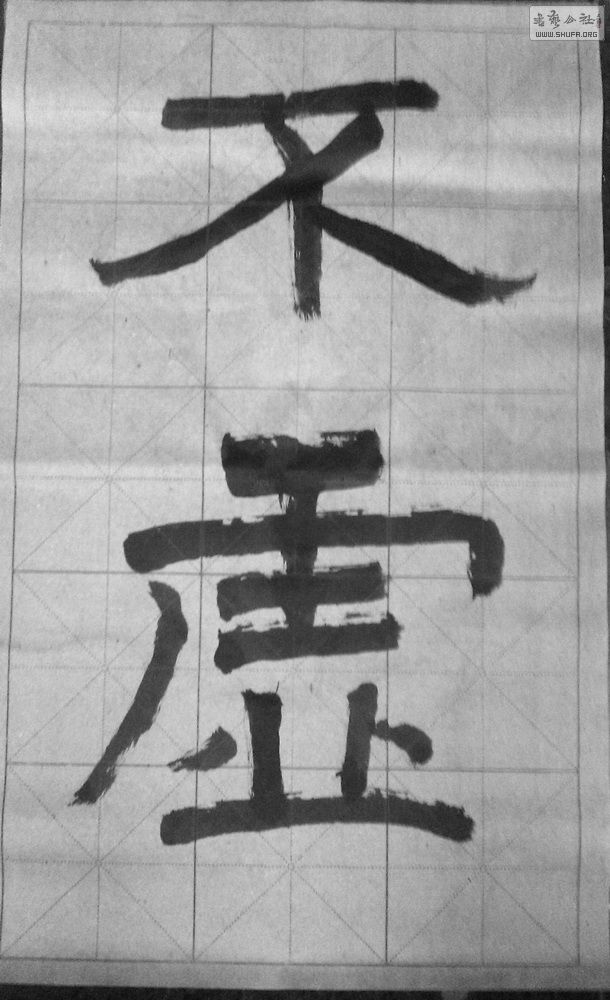 書藝公社
WWW.SHUFA.ORG
不
虛